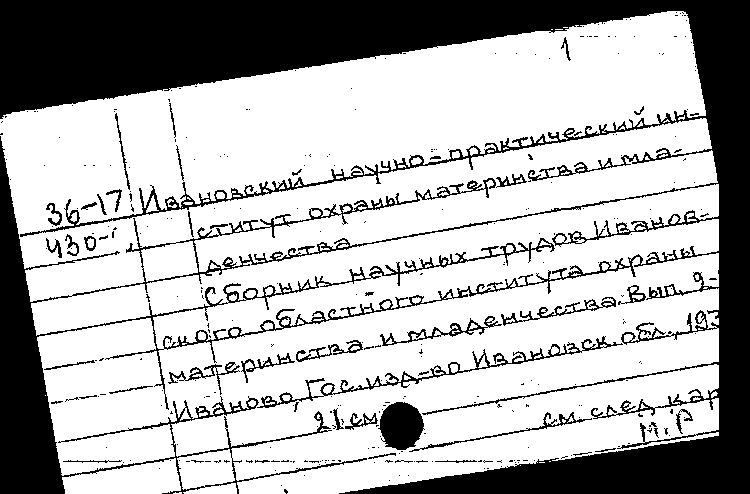 1
36-17 Ивановский научно=практический ин-
430- ститут охраны материнства и мла-
денчества
Сборник научных трудов Иванов-
ского областного института охраны
материнства и младенчества. Вып. 2-
Иваново, Гос. изд=во Ивановск. обл., 193
21 см см. след. кар
М.Р